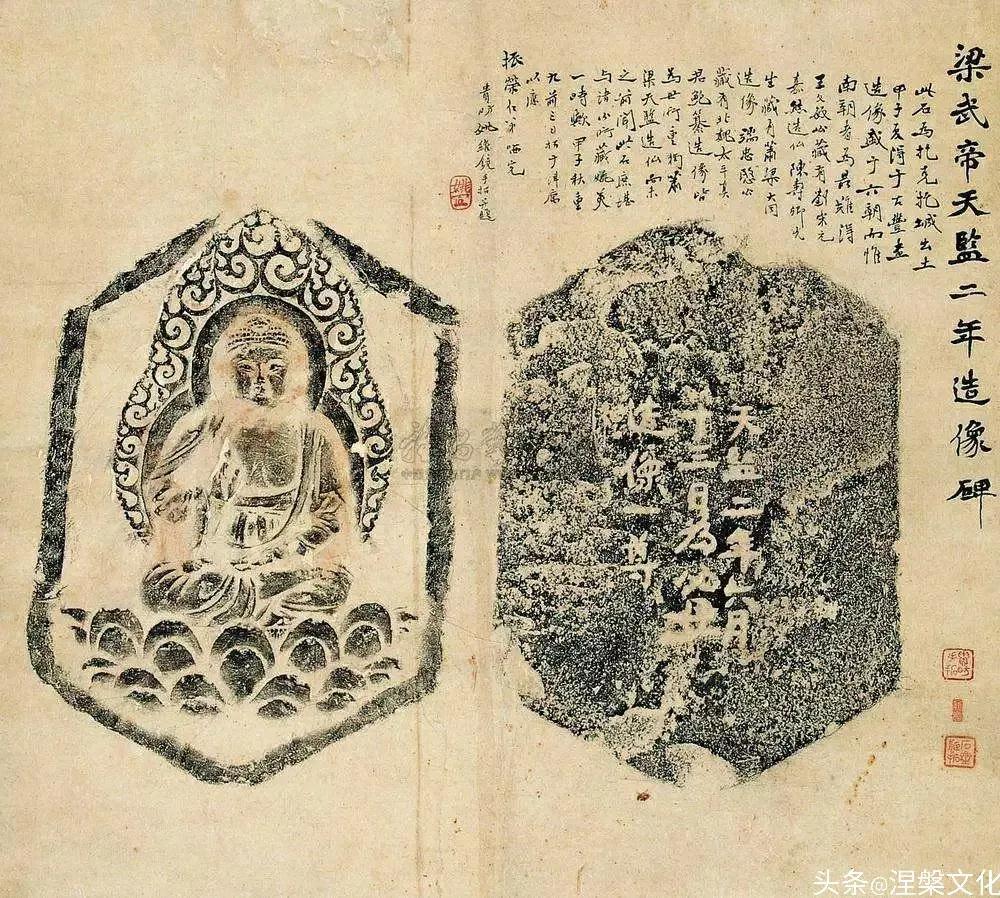 梁武帝天監二年造像碑
此石為扎克扎城出土
甲子夏得于古豐
造像盛于六朝而惟
南朝者為最難得
王文敏公藏有劉宋元
嘉造仏陳壽卿先
生藏有蕭梁大同
造像端忠愍公
藏有北魏太平真
君鮑纂造像皆
為世所重獨蕭
梁天監造仏尚未
之前聞此石庶堪
與諸所藏媲美
一時歟甲子秋重
九前三日拓于津廬
以應
振榮仁弟
貴昉姚鏡手拓並題
天監二年六月
廿二日為父母
造像一尊
头条@涅槃文化